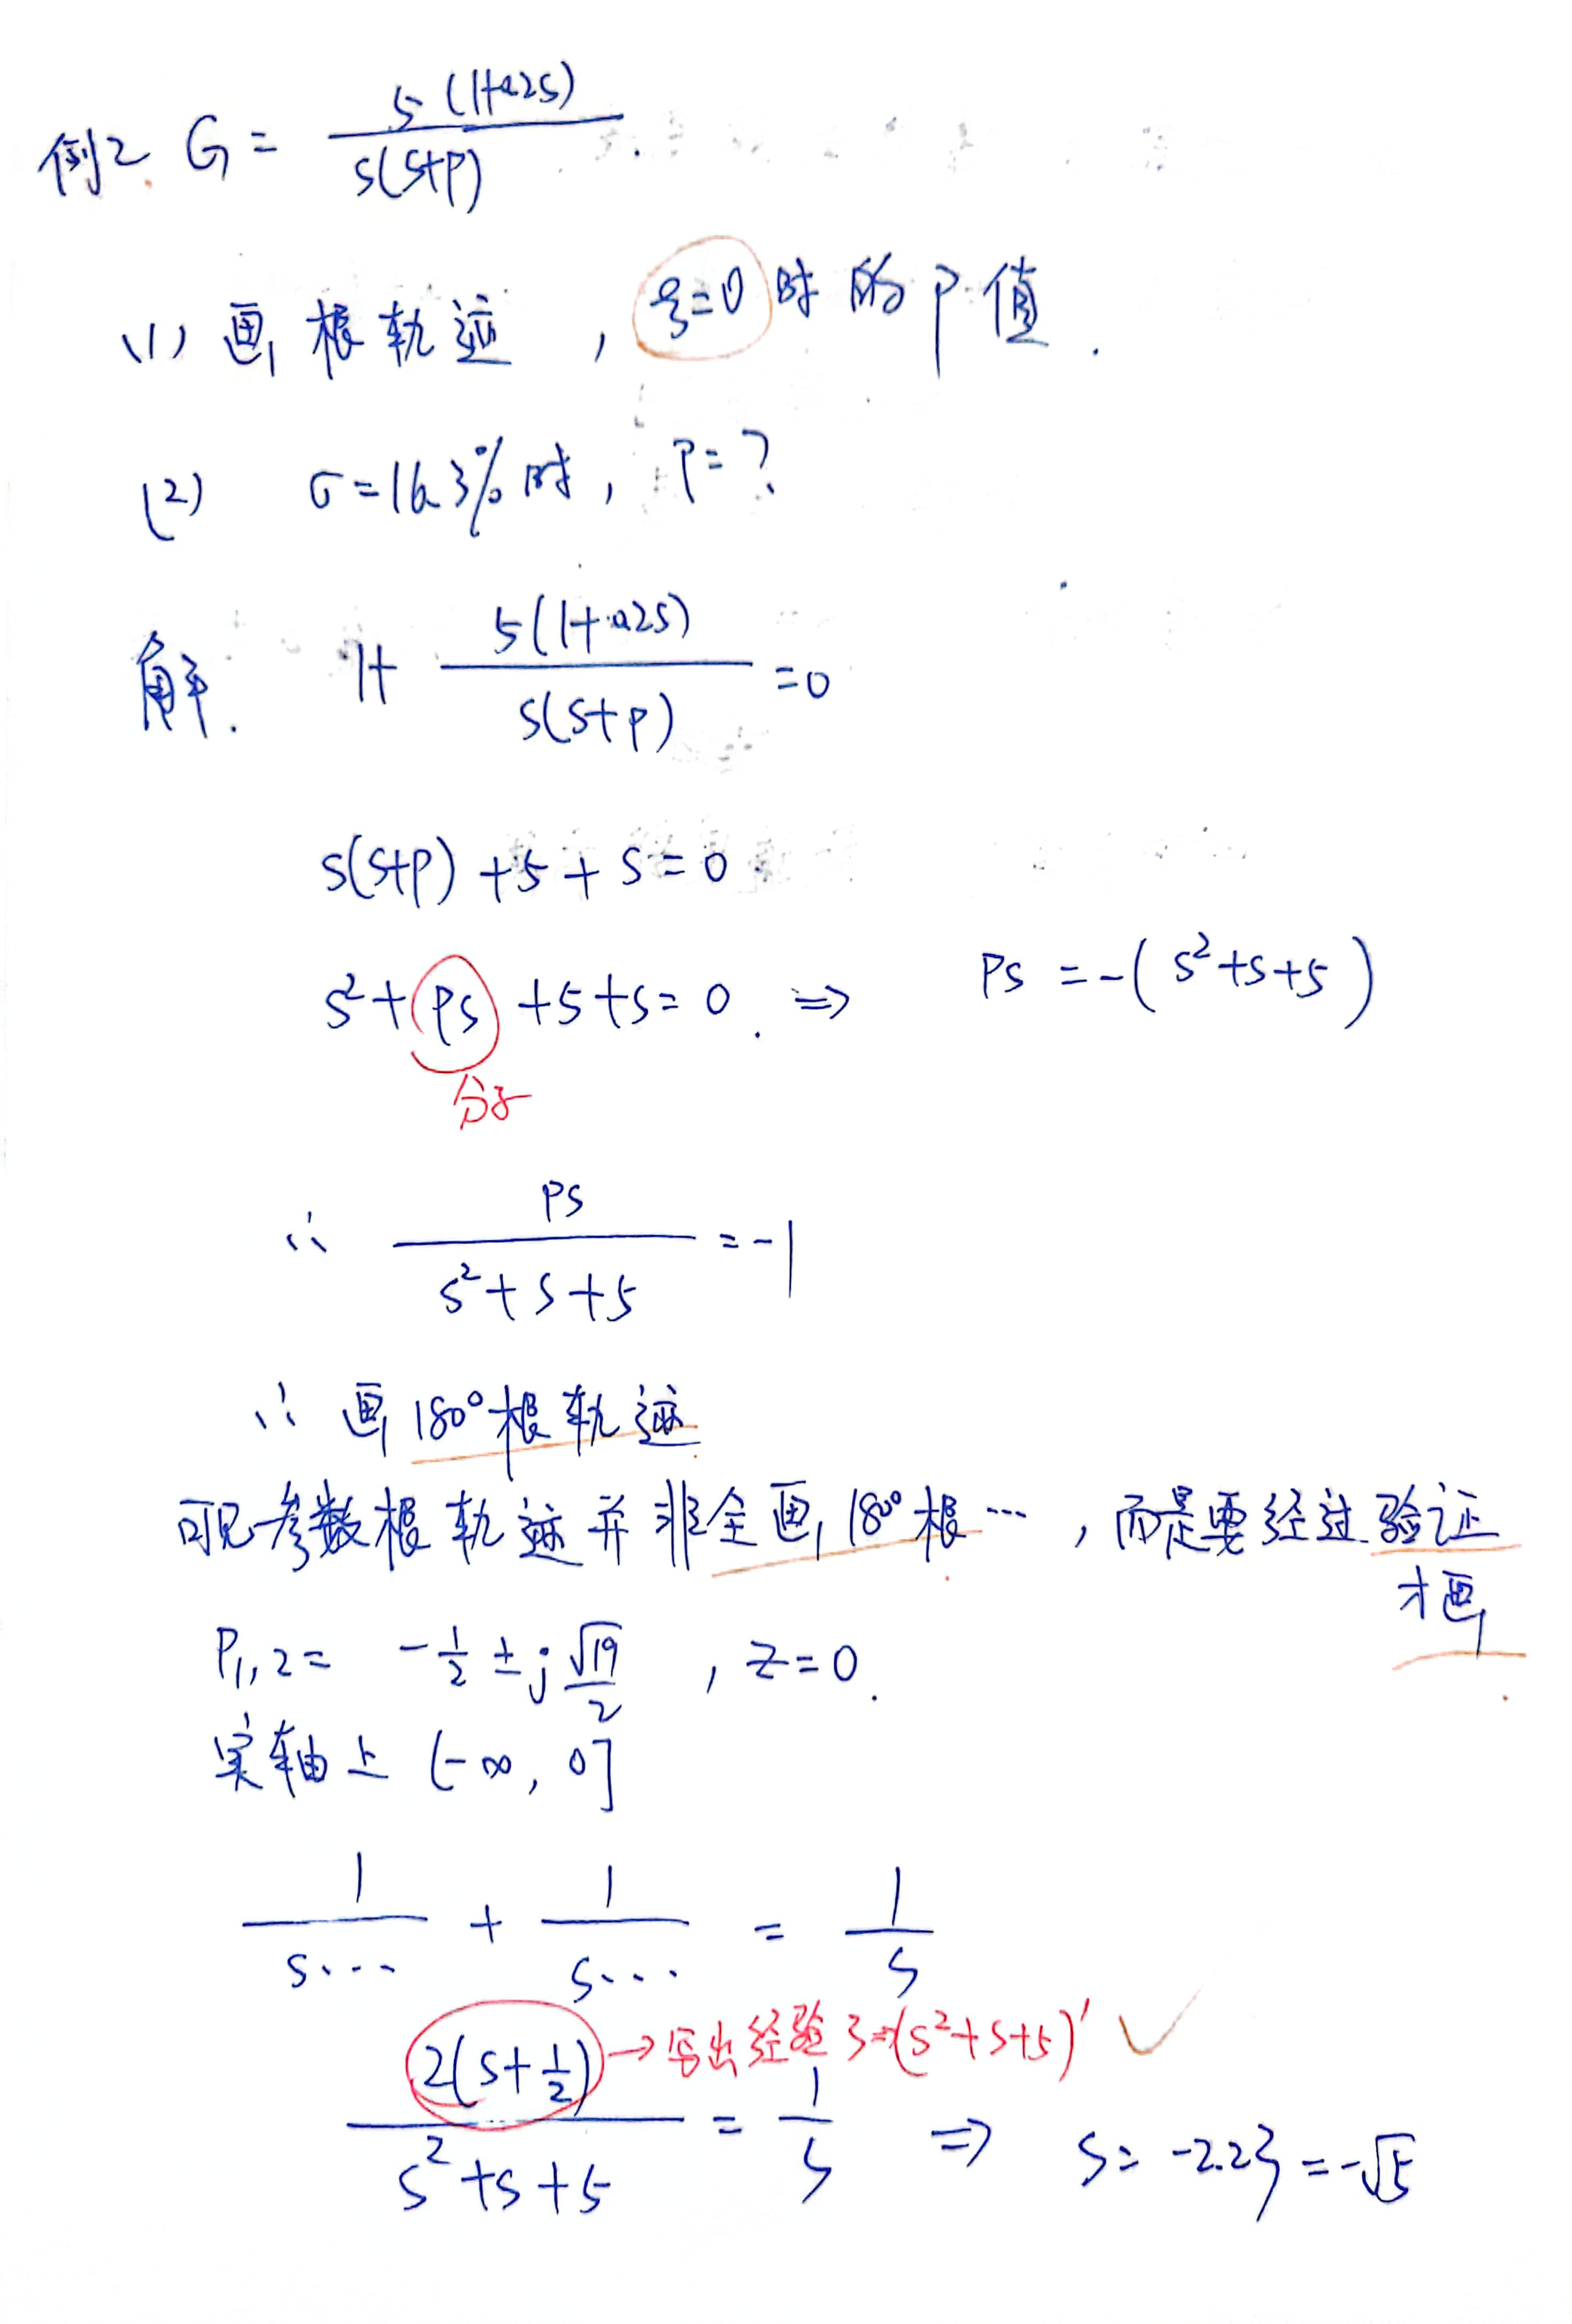 例2. G = 5(1+0.2s) / s(s+p)
(1) 画根轨迹, ξ=0时的P值.
(2) σ=16.3%时, P=?
解. 1+ 5(1+0.2s) / s(s+p) =0
s(s+p)+5+s=0
s²+ps+5+s=0. ⇒ Ps =-(s²+s+5)
分子
∴ Ps / s²+s+5 =-1
∴ 画180°根轨迹
可见参数根轨迹并非全画180°根…, 而是要经过验证
才画
P₁,₂= -1/2 ± j √19/2 , z=0.
实轴上 (-∞, 0]
1/s… + 1/s… = 1/s
→写出经验 (s²+s+5)′ ✓
2(s+1/2) / s²+s+5 = 1/s ⇒ s= -2.23=-√5